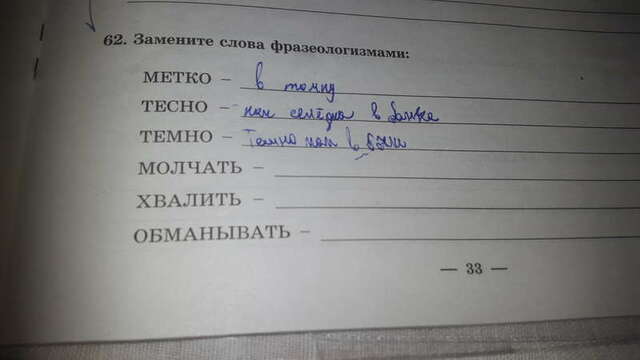 62. Замените слова фразеологизмами:
МЕТКО – в точку
ТЕСНО – как селёдка в банке
ТЕМНО – Темно как в
МОЛЧАТЬ –
ХВАЛИТЬ –
ОБМАНЫВАТЬ –
— 33 —